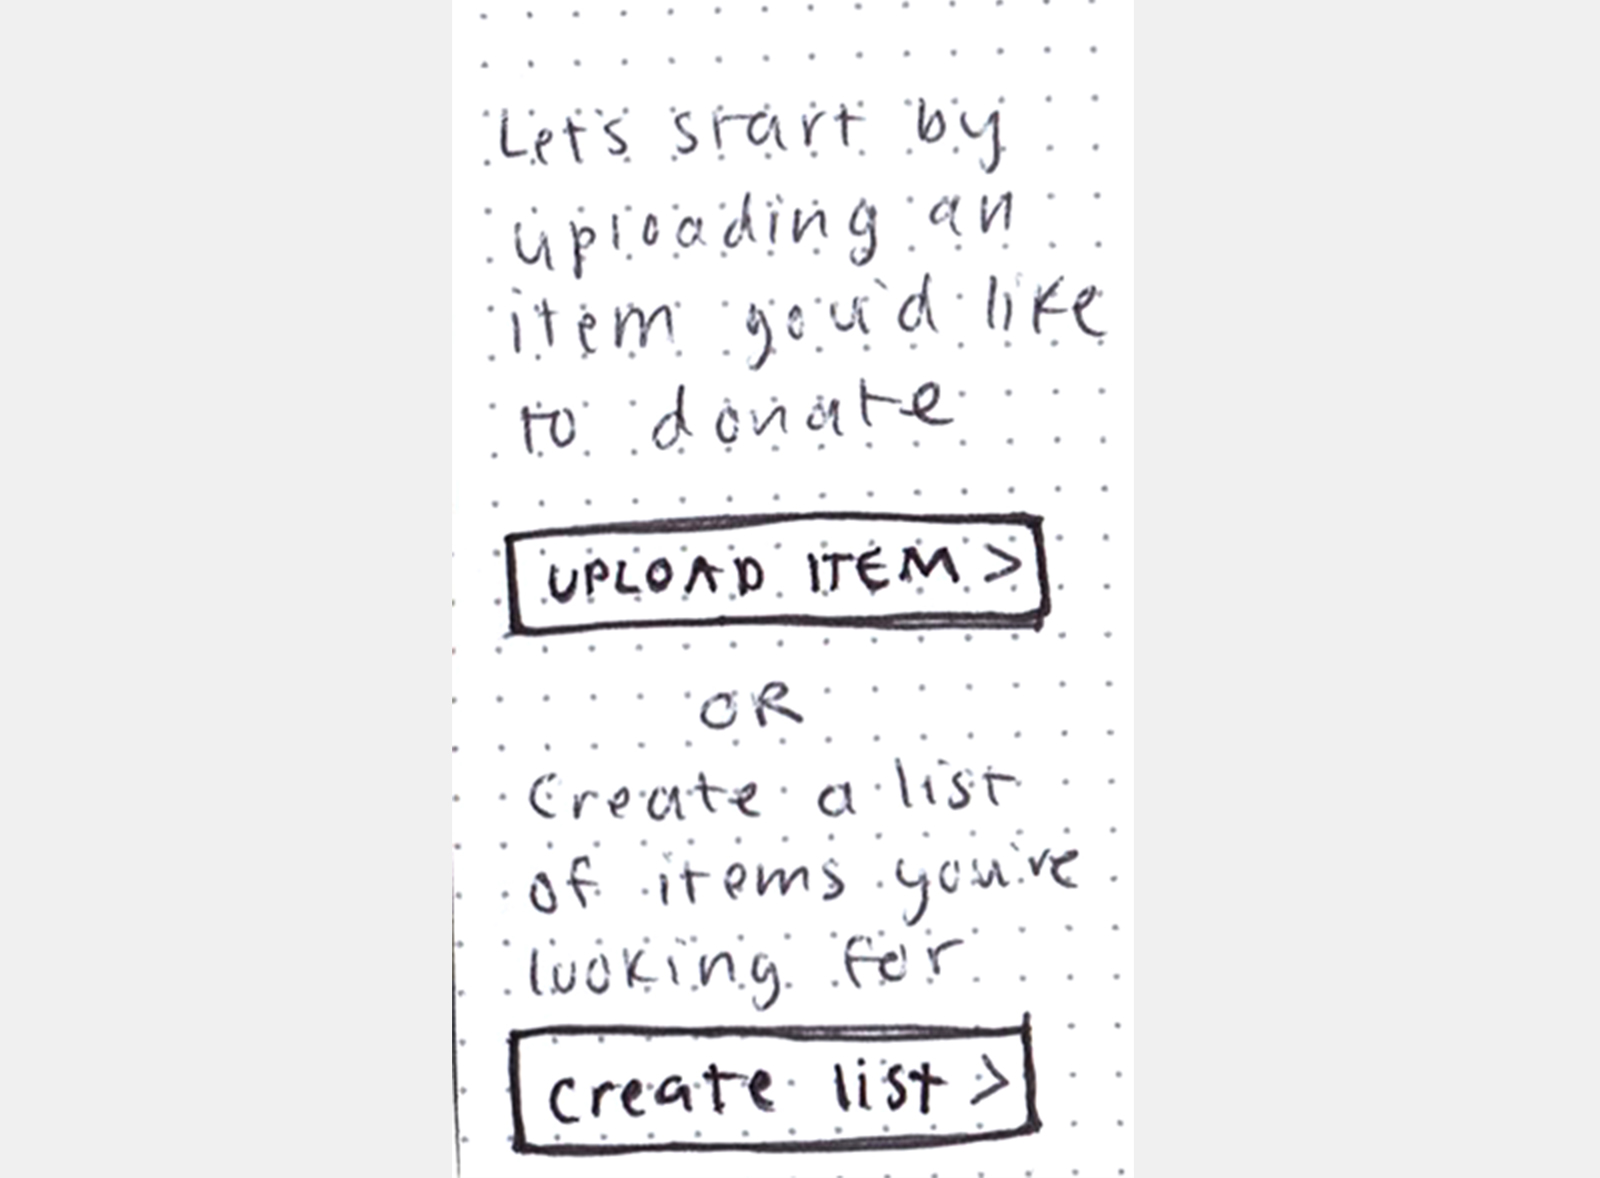 Let's start by
uploading an
item you'd like
to donate
UPLOAD ITEM >
OR
Create a list
of items you've
looking for
create list >